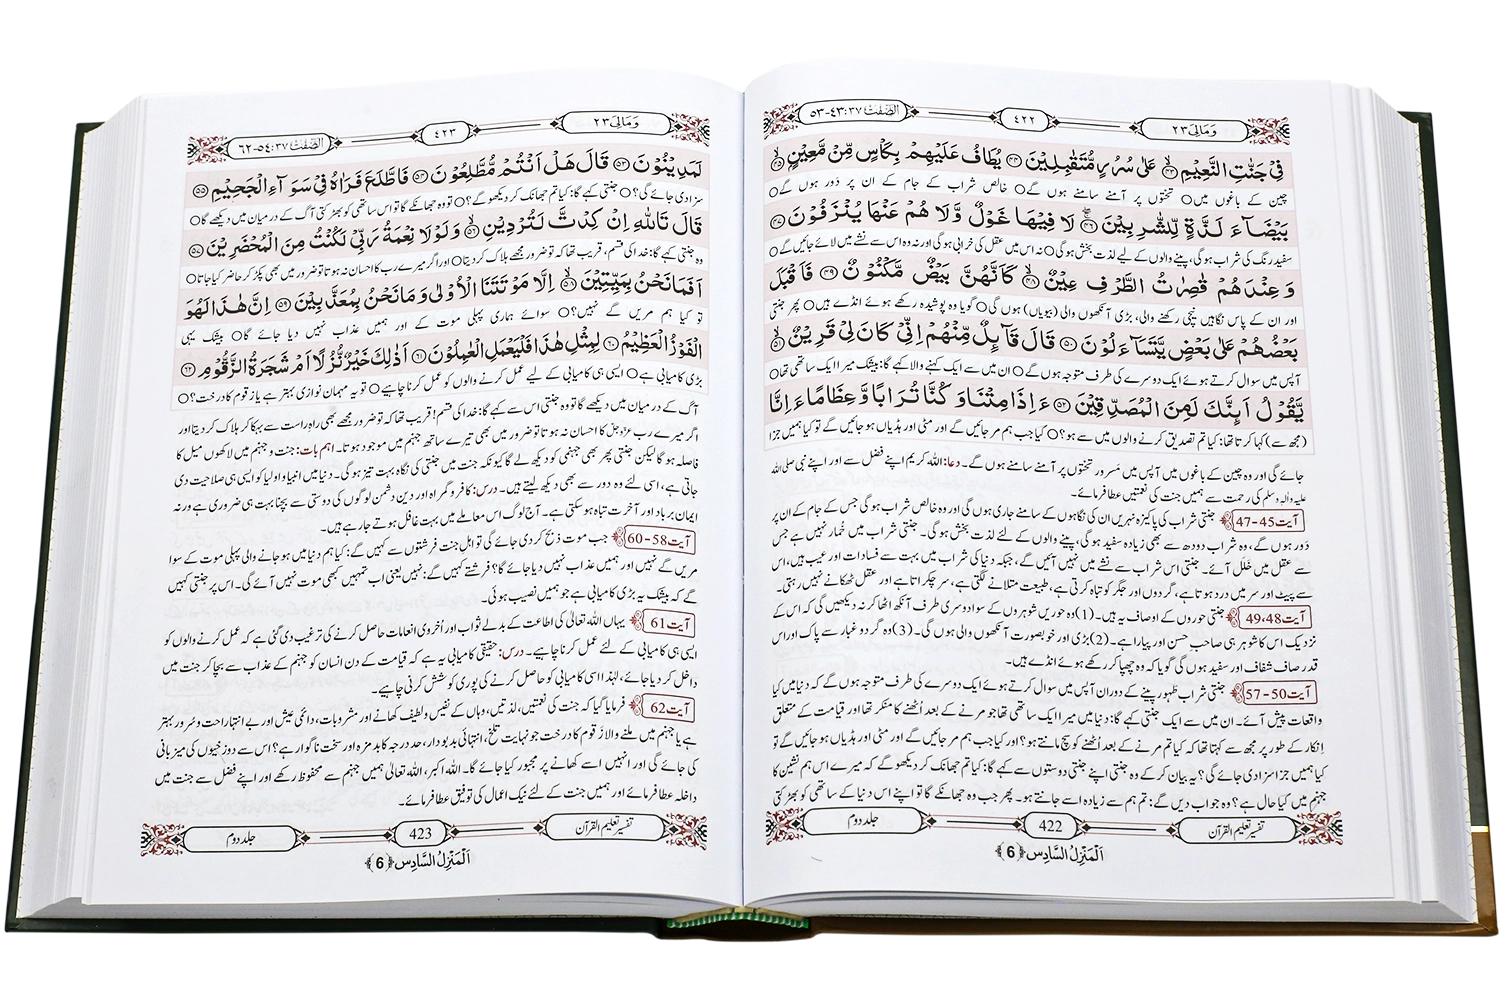 وَمَالِیَ ٢٣
٤٢٢
الصّٰفّٰت ٣٧: ٤٣-٥٣
فِیْ جَنّٰتِ النَّعِیْمِ ﴿٤٣﴾ عَلٰى سُرُرٍ مُّتَقٰبِلِیْنَ ﴿٤٤﴾ یُطَافُ عَلَیْهِمْ بِكَاْسٍ مِّنْ مَّعِیْنٍ ﴿٤٥﴾
چین کے باغوں میں ○ تختوں پر آمنے سامنے ہوں گے ○ خالص شراب کے جام کے ان پر دَور ہوں گے ○
بَیْضَآءَ لَذَّةٍ لِّلشّٰرِبِیْنَ ﴿٤٦﴾ لَا فِیْهَا غَوْلٌ وَّلَا هُمْ عَنْهَا یُنْزَفُوْنَ ﴿٤٧﴾
سفید رنگ کی شراب ہوگی، پینے والوں کے لیے لذت بخش ہوگی ○ نہ اس میں عقل کی خرابی ہوگی اور نہ وہ اس سے نشے میں لائے جائیں گے ○
وَعِنْدَهُمْ قٰصِرٰتُ الطَّرْفِ عِیْنٌ ﴿٤٨﴾ كَاَنَّهُنَّ بَیْضٌ مَّكْنُوْنٌ ﴿٤٩﴾ فَاَقْبَلَ
اور ان کے پاس نگاہیں نیچی رکھنے والی، بڑی آنکھوں والی (بیویاں) ہوں گی ○ گویا وہ پوشیدہ رکھے ہوئے انڈے ہیں ○ پھر جنتی
بَعْضُهُمْ عَلٰى بَعْضٍ یَّتَسَآءَلُوْنَ ﴿٥٠﴾ قَالَ قَآىٕلٌ مِّنْهُمْ اِنِّیْ كَانَ لِیْ قَرِیْنٌ ﴿٥١﴾
آپس میں سوال کرتے ہوئے ایک دوسرے کی طرف متوجہ ہوں گے ○ ان میں سے ایک کہنے والا کہے گا: بیشک میرا ایک ساتھی تھا ○
یَّقُوْلُ اَىٕنَّكَ لَمِنَ الْمُصَدِّقِیْنَ ﴿٥٢﴾ ءَاِذَا مِتْنَا وَكُنَّا تُرَابًا وَّعِظَامًا ءَاِنَّا
(مجھ سے) کہا کرتا تھا: کیا تم تصدیق کرنے والوں میں سے ہو؟ ○ کیا جب ہم مر جائیں گے اور مٹی اور ہڈیاں ہو جائیں گے تو کیا ہمیں جزا
جائے گی اور وہ چین کے باغوں میں آپس میں مسرور تختوں پر آمنے سامنے ہوں گے۔ دعا: اللہ کریم اپنے فضل سے اور اپنے نبی صلی اللہ
علیہ والہ وسلم کی رحمت سے ہمیں جنت کی نعمتیں عطا فرمائے۔
آیت45-47 جنتی شراب کی پاکیزہ نہریں ان کی نگاہوں کے سامنے جاری ہوں گی اور وہ خالص شراب ہوگی جس کے جام کے ان پر
دَور ہوں گے، وہ شراب دودھ سے بھی زیادہ سفید ہوگی، پینے والوں کے لئے لذت بخش ہوگی۔ جنتی شراب میں خمار نہیں ہے جس
سے عقل میں خلل آئے۔ جنتی اس شراب سے نشے میں نہیں آئیں گے، جبکہ دنیا کی شراب میں بہت سے فسادات اور عیب ہیں، اس
سے پیٹ اور سر میں درد ہوتا ہے، گردوں اور جگر کو تباہ کرتی ہے، طبیعت متلانے لگتی ہے، سر چکراتا ہے اور عقل ٹھکانے نہیں رہتی۔
آیت48، 49 جنتی حوروں کے اوصاف یہ ہیں۔ (1) وہ حوریں شوہروں کے سوا دوسری طرف آنکھ اٹھا کر نہ دیکھیں گی کہ اس کے
نزدیک اس کا شوہر ہی صاحب حسن اور پیارا ہے۔ (2) بڑی اور خوبصورت آنکھوں والی ہوں گی۔ (3) وہ گرد و غبار سے پاک اور اس
قدر صاف شفاف اور سفید ہوں گی گویا کہ وہ چھپا کر رکھے ہوئے انڈے ہیں۔
آیت50-57 جنتی شراب طہور پینے کے دوران آپس میں سوال کرتے ہوئے ایک دوسرے کی طرف متوجہ ہوں گے کہ دنیا میں کیا
واقعات پیش آئے۔ ان میں سے ایک جنتی کہے گا: دنیا میں میرا ایک ساتھی تھا جو مرنے کے بعد اُٹھنے کا منکر تھا اور قیامت کے متعلق
انکار کے طور پر مجھ سے کہتا تھا کہ کیا تم مرنے کے بعد اُٹھنے کو سچ مانتے ہو؟ اور کیا جب ہم مر جائیں گے اور مٹی اور ہڈیاں ہو جائیں گے تو
کیا ہمیں جزا سزا دی جائے گی؟ یہ بیان کر کے وہ جنتی اپنے جنتی دوستوں سے کہے گا: کیا تم جھانک کر دیکھو گے کہ میرے اس ہم نشین کا
جہنم میں کیا حال ہے؟ وہ جواب دیں گے: تم ہم سے زیادہ اسے جانتے ہو۔ پھر جب وہ جھانکے گا تو اپنے اس دنیا کے ساتھی کو بھڑکتی
تفسیر تعلیم القرآن
422
جلد دوم
اَلْمَنْزِلُ السَّادِس ﴿6﴾
وَمَالِیَ ٢٣
٤٢٣
الصّٰفّٰت ٣٧: ٥٤-٦٢
لَمَدِیْنُوْنَ ﴿٥٣﴾ قَالَ هَلْ اَنْتُمْ مُّطَّلِعُوْنَ ﴿٥٤﴾ فَاطَّلَعَ فَرَاٰهُ فِیْ سَوَآءِ الْجَحِیْمِ ﴿٥٥﴾
سزا دی جائے گی؟ ○ جنتی کہے گا: کیا تم جھانک کر دیکھو گے؟ ○ تو وہ جھانکے گا تو اس ساتھی کو بھڑکتی آگ کے درمیان میں دیکھے گا ○
قَالَ تَاللّٰهِ اِنْ كِدْتَّ لَتُرْدِیْنِ ﴿٥٦﴾ وَلَوْلَا نِعْمَةُ رَبِّیْ لَكُنْتُ مِنَ الْمُحْضَرِیْنَ ﴿٥٧﴾
وہ جنتی کہے گا: خدا کی قسم، قریب تھا کہ تو ضرور مجھے ہلاک کر دیتا ○ اور اگر میرے رب کا احسان نہ ہوتا تو ضرور میں بھی پکڑ کر حاضر کیا جاتا ○
اَفَمَا نَحْنُ بِمَیِّتِیْنَ ﴿٥٨﴾ اِلَّا مَوْتَتَنَا الْاُوْلٰى وَمَا نَحْنُ بِمُعَذَّبِیْنَ ﴿٥٩﴾ اِنَّ هٰذَا لَهُوَ
تو کیا ہم مریں گے نہیں؟ ○ سوائے ہماری پہلی موت کے اور ہمیں عذاب نہیں دیا جائے گا ○ بیشک یہی
الْفَوْزُ الْعَظِیْمُ ﴿٦٠﴾ لِمِثْلِ هٰذَا فَلْیَعْمَلِ الْعٰمِلُوْنَ ﴿٦١﴾ اَذٰلِكَ خَیْرٌ نُّزُلًا اَمْ شَجَرَةُ الزَّقُّوْمِ ﴿٦٢﴾
بڑی کامیابی ہے ○ ایسی ہی کامیابی کے لیے عمل کرنے والوں کو عمل کرنا چاہیے ○ تو یہ مہمان نوازی بہتر ہے یا زقوم کا درخت؟ ○
آگ کے درمیان میں دیکھے گا تو وہ جنتی اس سے کہے گا: خدا کی قسم! قریب تھا کہ تو ضرور مجھے بھی راہِ راست سے بہکا کر ہلاک کر دیتا اور
اگر میرے رب عزوجل کا احسان نہ ہوتا تو ضرور میں بھی تیرے ساتھ جہنم میں موجود ہوتا۔ اہم بات: جنت و جہنم میں لاکھوں میل کا
فاصلہ ہوگا لیکن جنتی پھر بھی جہنمی کو دیکھ لے گا کیونکہ جنت میں جنتی کی نگاہ بہت تیز ہوگی۔ دنیا میں انبیا و اولیا کو ایسی ہی صلاحیت دی
جاتی ہے، اسی لئے وہ دور سے بھی دیکھ لیتے ہیں۔ درس: کافر و گمراہ اور دین دشمن لوگوں کی دوستی سے بچنا بہت ہی ضروری ہے ورنہ
ایمان برباد اور آخرت تباہ ہو سکتی ہے۔ آج لوگ اس معاملے میں بہت غافل ہوتے جا رہے ہیں۔
آیت58-60 جب موت ذبح کر دی جائے گی تو اہل جنت فرشتوں سے کہیں گے: کیا ہم دنیا میں ہو جانے والی پہلی موت کے سوا
مریں گے نہیں اور ہمیں عذاب نہیں دیا جائے گا؟ فرشتے کہیں گے: نہیں یعنی اب تمہیں کبھی موت نہیں آئے گی۔ اس پر جنتی کہیں
گے کہ بیشک یہ بڑی کامیابی ہے جو ہمیں نصیب ہوئی۔
آیت61 یہاں اللہ تعالیٰ کی اطاعت کے بدلے ثواب اور اُخروی انعامات حاصل کرنے کی ترغیب دی گئی ہے کہ عمل کرنے والوں کو
ایسی ہی کامیابی کے لئے عمل کرنا چاہیے۔ درس: حقیقی کامیابی یہ ہے کہ قیامت کے دن انسان کو جہنم کے عذاب سے بچا کر جنت میں
داخل کر دیا جائے، لہٰذا اسی کامیابی کو حاصل کرنے کی پوری کوشش کرنی چاہیے۔
آیت62 فرمایا گیا کہ جنت کی نعمتیں، لذتیں، وہاں کے نفیس و لطیف کھانے اور مشروبات، دائمی عیش اور بے انتہا راحت و سُرور بہتر
ہے یا جہنم میں ملنے والا زقوم کا درخت جو نہایت تلخ، انتہائی بدبودار، حد درجہ کا بدمزہ اور سخت ناگوار ہے؟ اس سے دوزخیوں کی میزبانی
کی جائے گی اور انہیں اسے کھانے پر مجبور کیا جائے گا۔ اللہ اکبر، اللہ تعالیٰ ہمیں جہنم سے محفوظ رکھے اور اپنے فضل سے جنت میں
داخلہ عطا فرمائے اور ہمیں جنت کے لئے نیک اعمال کی توفیق عطا فرمائے۔
تفسیر تعلیم القرآن
423
جلد دوم
اَلْمَنْزِلُ السَّادِس ﴿6﴾